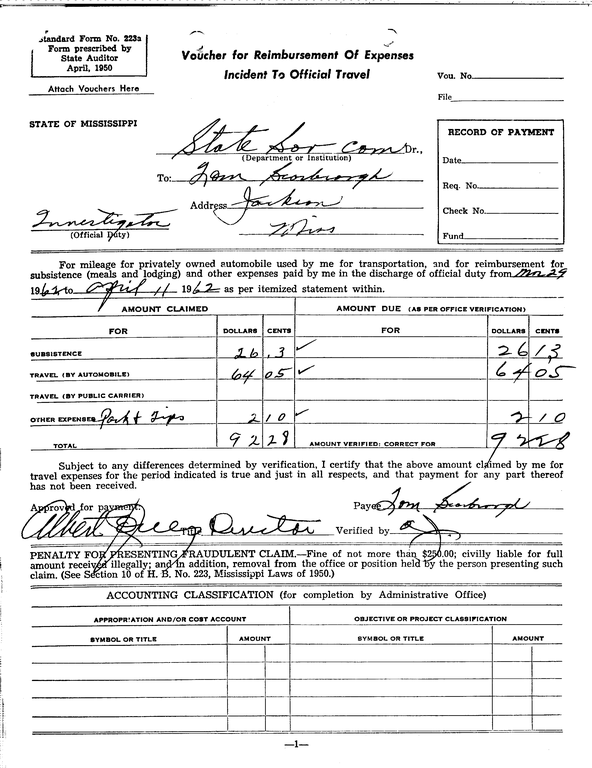 Standard Form No. 223a
Form prescribed by
State Auditor
April, 1950
Attach Vouchers Here
Voucher for Reimbursement Of Expenses
Incident To Official Travel
Vou. No.
File
STATE OF MISSISSIPPI
State Sov Com Dr.,
(Department or Institution)
To: Tom Scarbrough
Address Jackson
Miss
Investigator
(Official Duty)
RECORD OF PAYMENT
Date
Req. No.
Check No.
Fund
For mileage for privately owned automobile used by me for transportation, and for reimbursement for
subsistence (meals and lodging) and other expenses paid by me in the discharge of official duty from 29
1962 to April 11 1962 as per itemized statement within.
AMOUNT CLAIMED
AMOUNT DUE (AS PER OFFICE VERIFICATION)
FOR DOLLARS CENTS FOR DOLLARS CENTS
SUBSISTENCE 26 13 26 13
TRAVEL (BY AUTOMOBILE) 64 05 64 05
TRAVEL (BY PUBLIC CARRIER)
OTHER EXPENSES Park & Tips 2 10 2 10
TOTAL 92 28 AMOUNT VERIFIED: CORRECT FOR 92 28
Subject to any differences determined by verification, I certify that the above amount claimed by me for
travel expenses for the period indicated is true and just in all respects, and that payment for any part thereof
has not been received.
Approved for payment:
Payee Tom Scarbrough
Albert Title Director
Verified by
PENALTY FOR PRESENTING FRAUDULENT CLAIM.—Fine of not more than $250.00; civilly liable for full
amount received illegally; and in addition, removal from the office or position held by the person presenting such
claim. (See Section 10 of H. B. No. 223, Mississippi Laws of 1950.)
ACCOUNTING CLASSIFICATION (for completion by Administrative Office)
APPROPRIATION AND/OR COST ACCOUNT
OBJECTIVE OR PROJECT CLASSIFICATION
SYMBOL OR TITLE AMOUNT SYMBOL OR TITLE AMOUNT
—1—